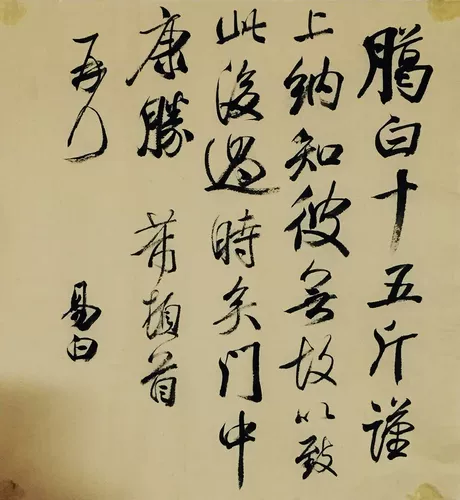 白十五斤謹
上納知彼無故以致
此後過時矣門中
康勝 芾頓首
再行 易白